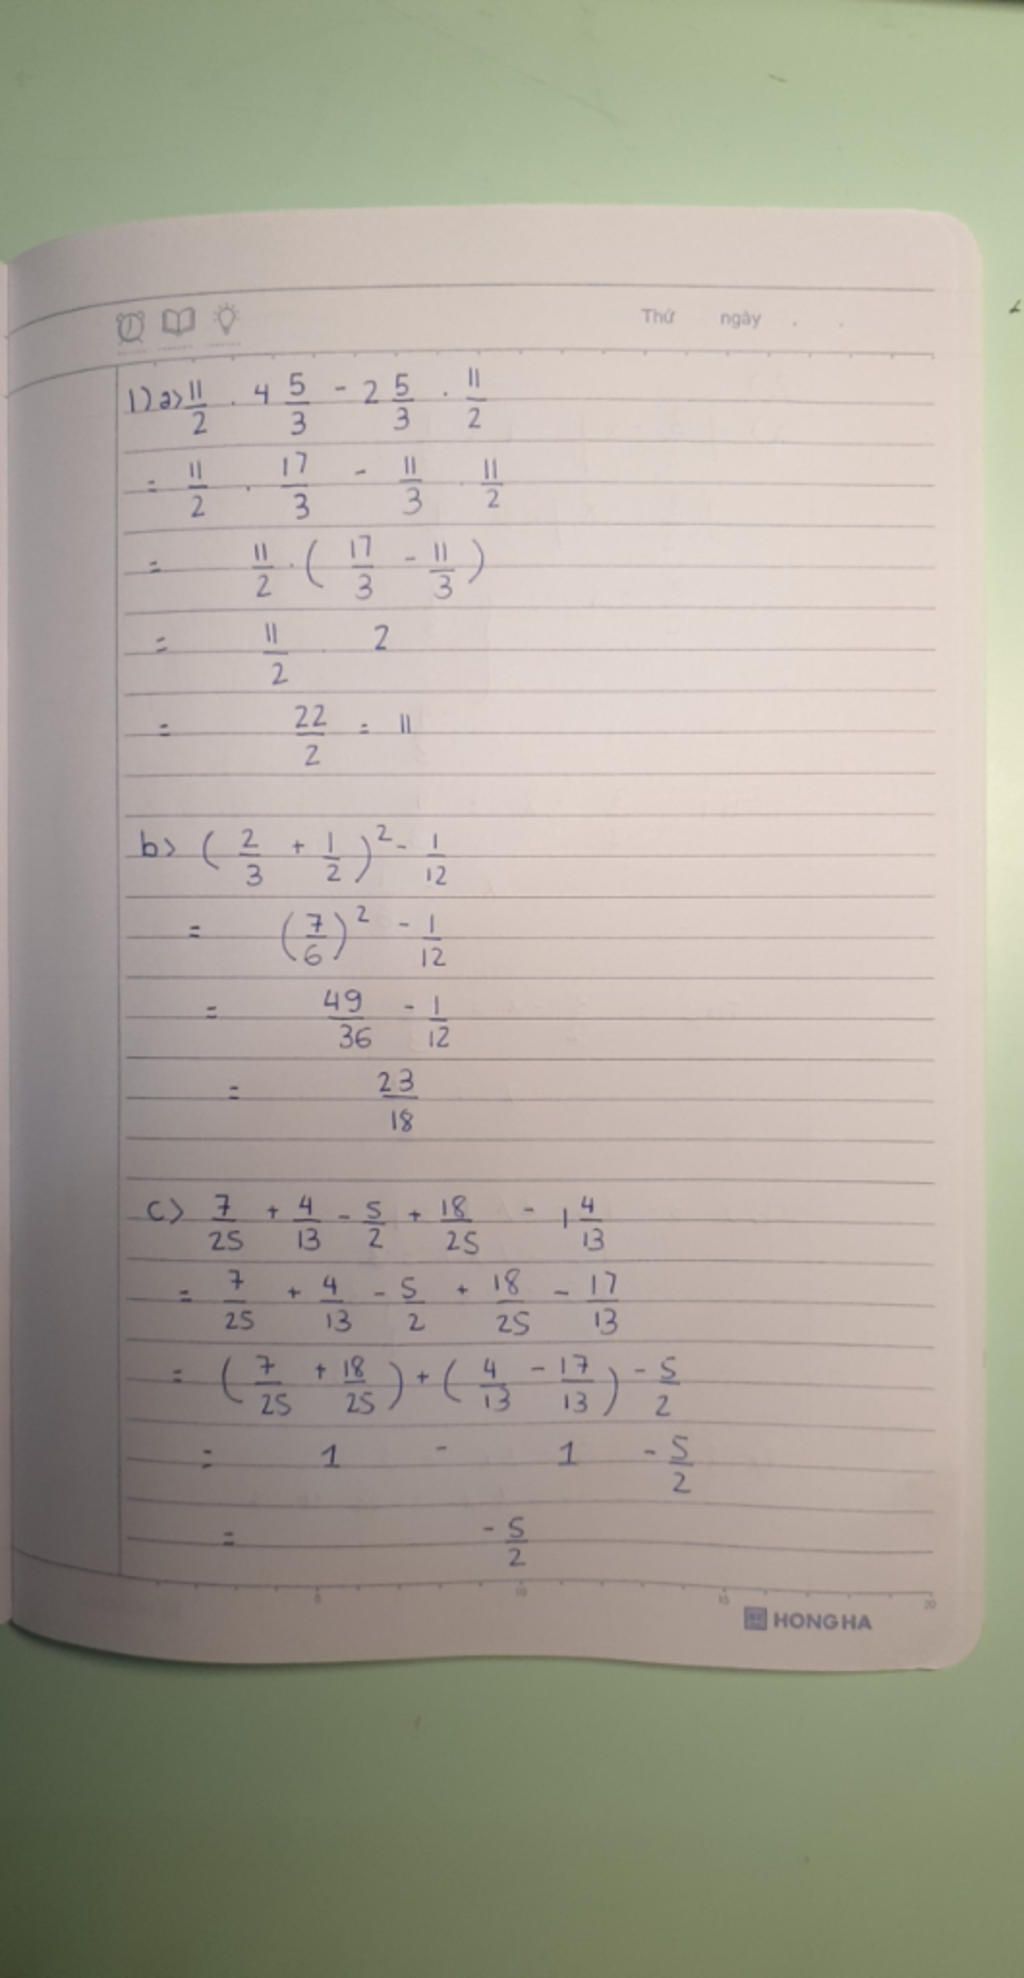 Thứ ngày . .
1) a> 11/2 . 4 5/3 - 2 5/3 . 11/2
= 11/2 . 17/3 - 11/3 . 11/2
= 11/2 . ( 17/3 - 11/3 )
= 11/2 . 2
= 22/2 = 11
b> ( 2/3 + 1/2 )² - 1/12
= ( 7/6 )² - 1/12
= 49/36 - 1/12
= 23/18
c> 7/25 + 4/13 - 5/2 + 18/25 - 1 4/13
= 7/25 + 4/13 - 5/2 + 18/25 - 17/13
= ( 7/25 + 18/25 ) + ( 4/13 - 17/13 ) - 5/2
= 1 - 1 - 5/2
= - 5/2
5 10 15 20
HONG HA